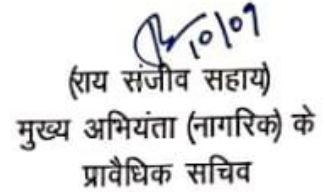 10/09
(राय संजीव सहाय)
मुख्य अभियंता (नागरिक) के
प्रावैधिक सचिव